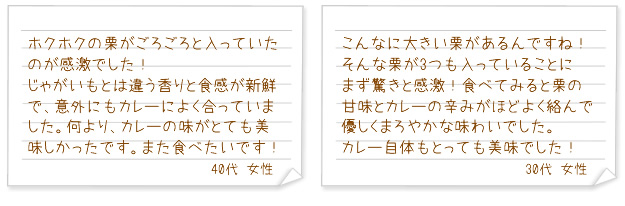 ホクホクの栗がごろごろと入っていた
のが感激でした！
じゃがいもとは違う香りと食感が新鮮
で、意外にもカレーによく合っていま
した。何より、カレーの味がとても美
味しかったです。また食べたいです！
40代 女性
こんなに大きい栗があるんですね！
そんな栗が3つも入っていることに
まず驚きと感激！食べてみると栗の
甘味とカレーの辛みがほどよく絡んで
優しくまろやかな味わいでした。
カレー自体もとっても美味でした！
30代 女性